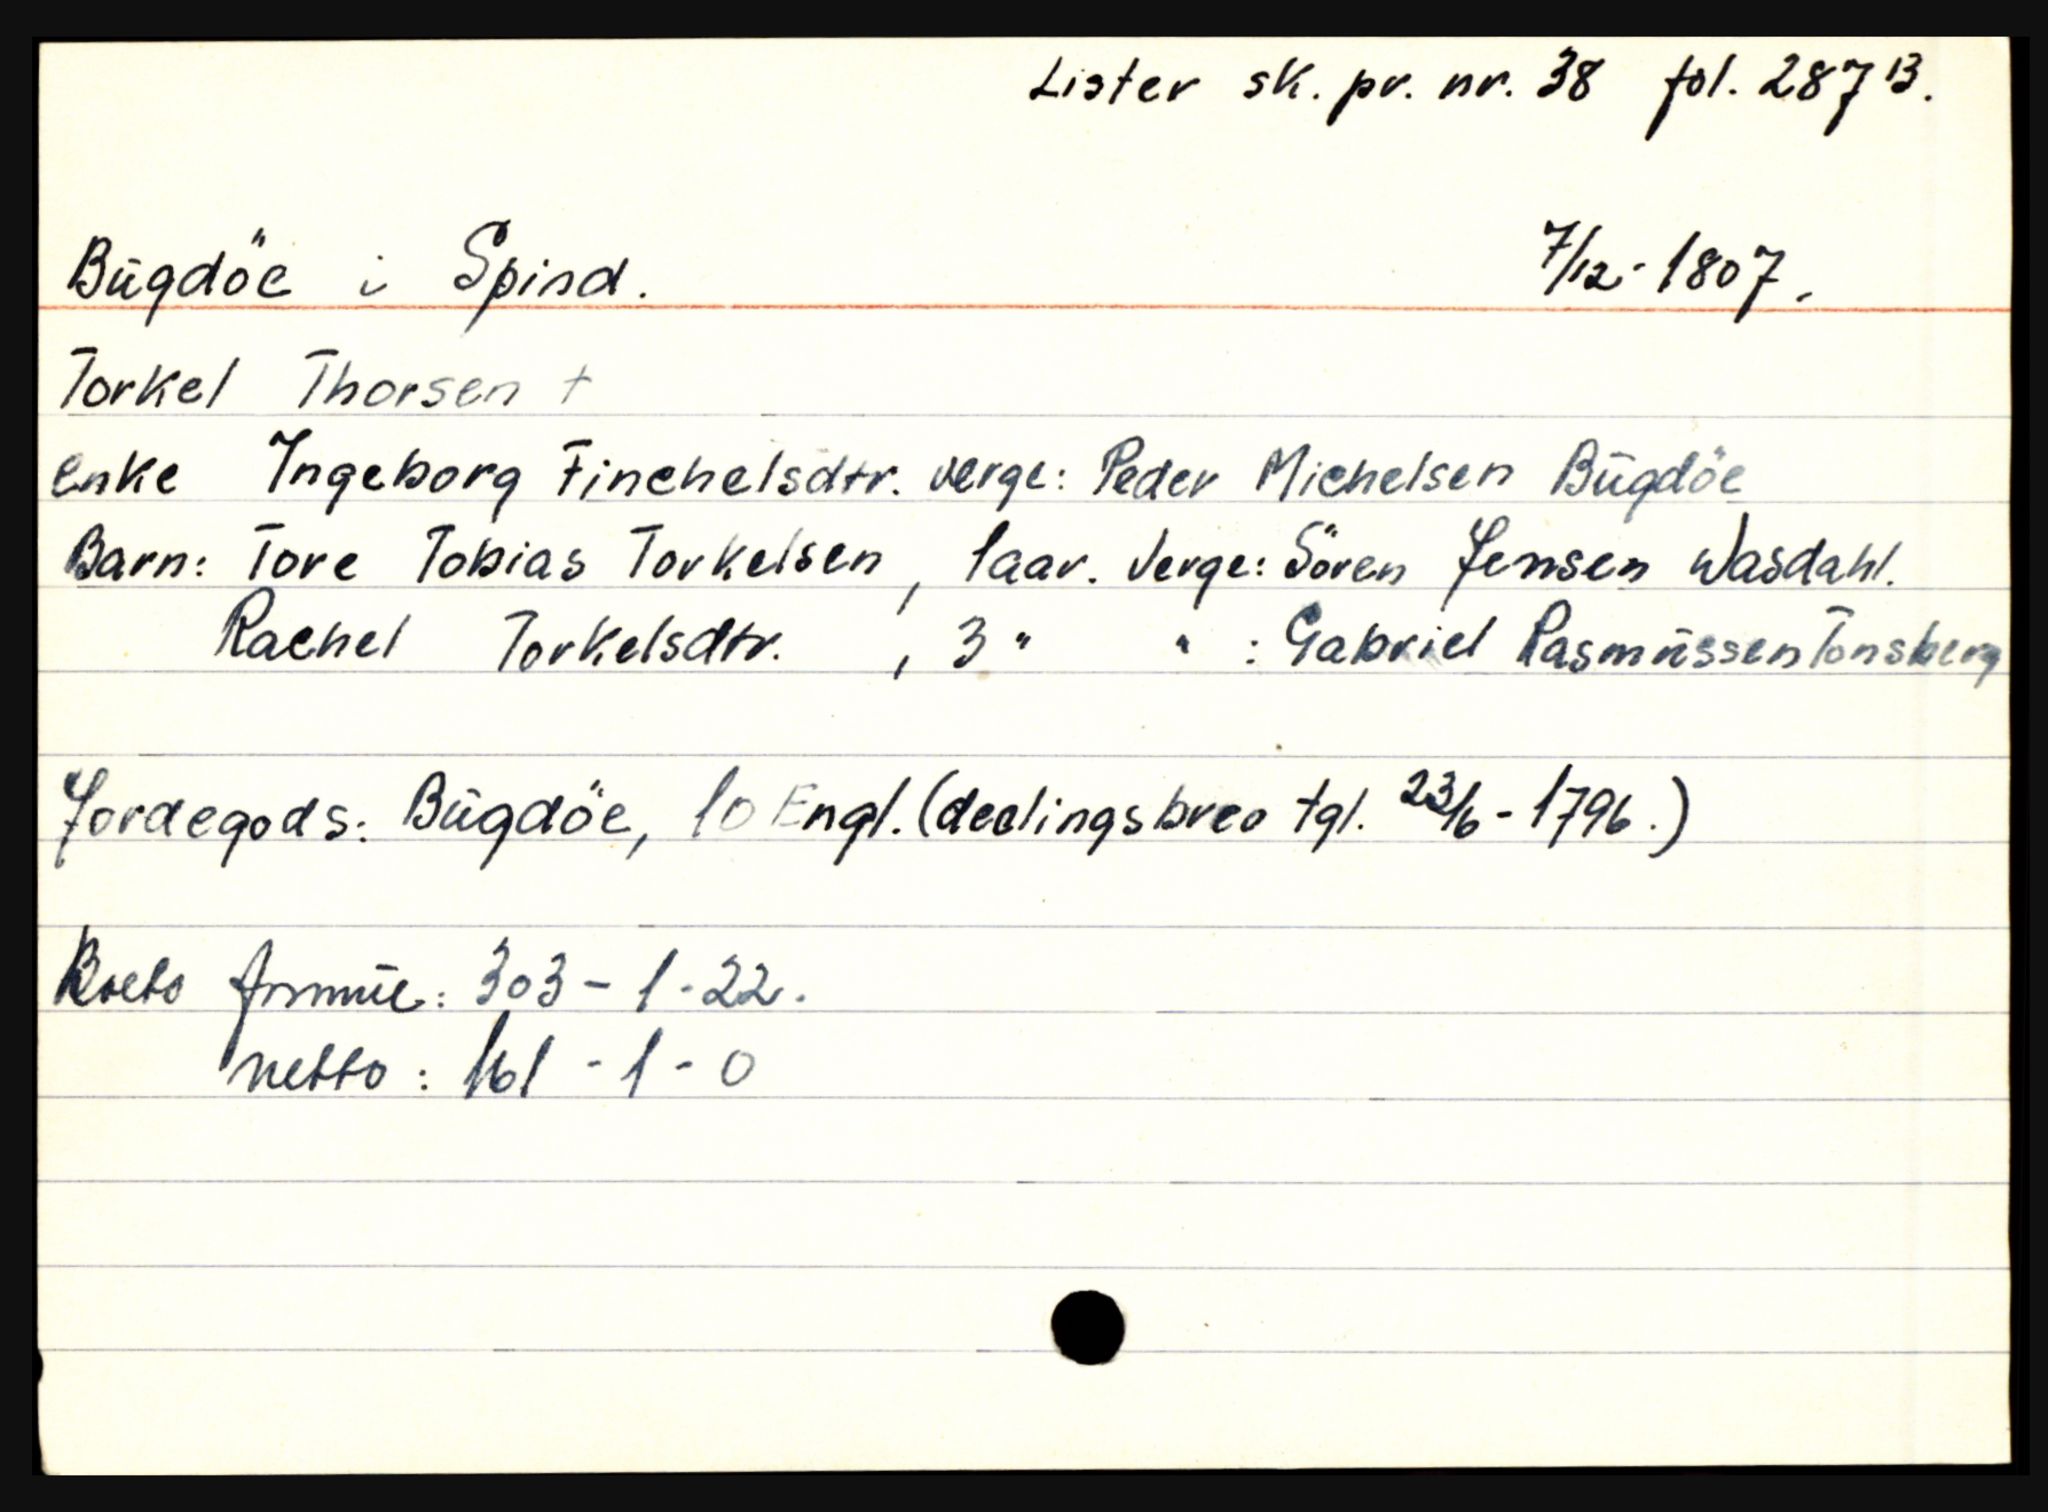 Lister sk. pr. nr. 38 fol. 287 B.
Bügdöe i Spind. 7/12-1807.
Torkel Thorsen +
Enke Ingeborg Finchelsdtr. verge: Peder Michelsen Bügdöe
Barn: Tore Tobias Torkelsen, 1 aar. Verge: Sören Jensen Wasdahl.
Rachel Torkelsdtr. , 3 " " : Gabriel Rasmüssen Tonsberg
Jordegods: Bügdöe, 10 Engl. (deelingsbrev tgl. 23/6-1796.)
Broto formüe: 303-1-22.
netto: 161-1-0